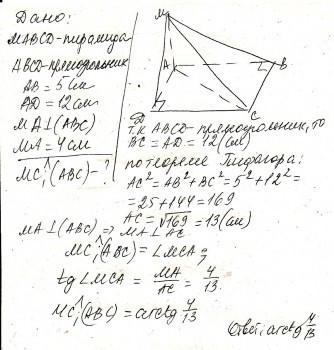 Дано:
MABCD-пирамида
ABCD-прямоугольник
AB = 5 см
AD = 12 см
MA ⊥ (ABC)
MA = 4 см
MC^(ABC) - ?
M
A
B
C
D
т.к ABCD-прямоугольник, то
BC = AD = 12 (см)
по теореме Пифагора:
AC² = AB² + BC² = 5² + 12² =
= 25 + 144 = 169
AC = √169 = 13 (см)
MA ⊥ (ABC) => MA ⊥ AC
MC^(ABC) = ∠MCA;
tg ∠MCA = MA/AC = 4/13
MC^(ABC) = arctg 4/13
Ответ: arctg 4/13